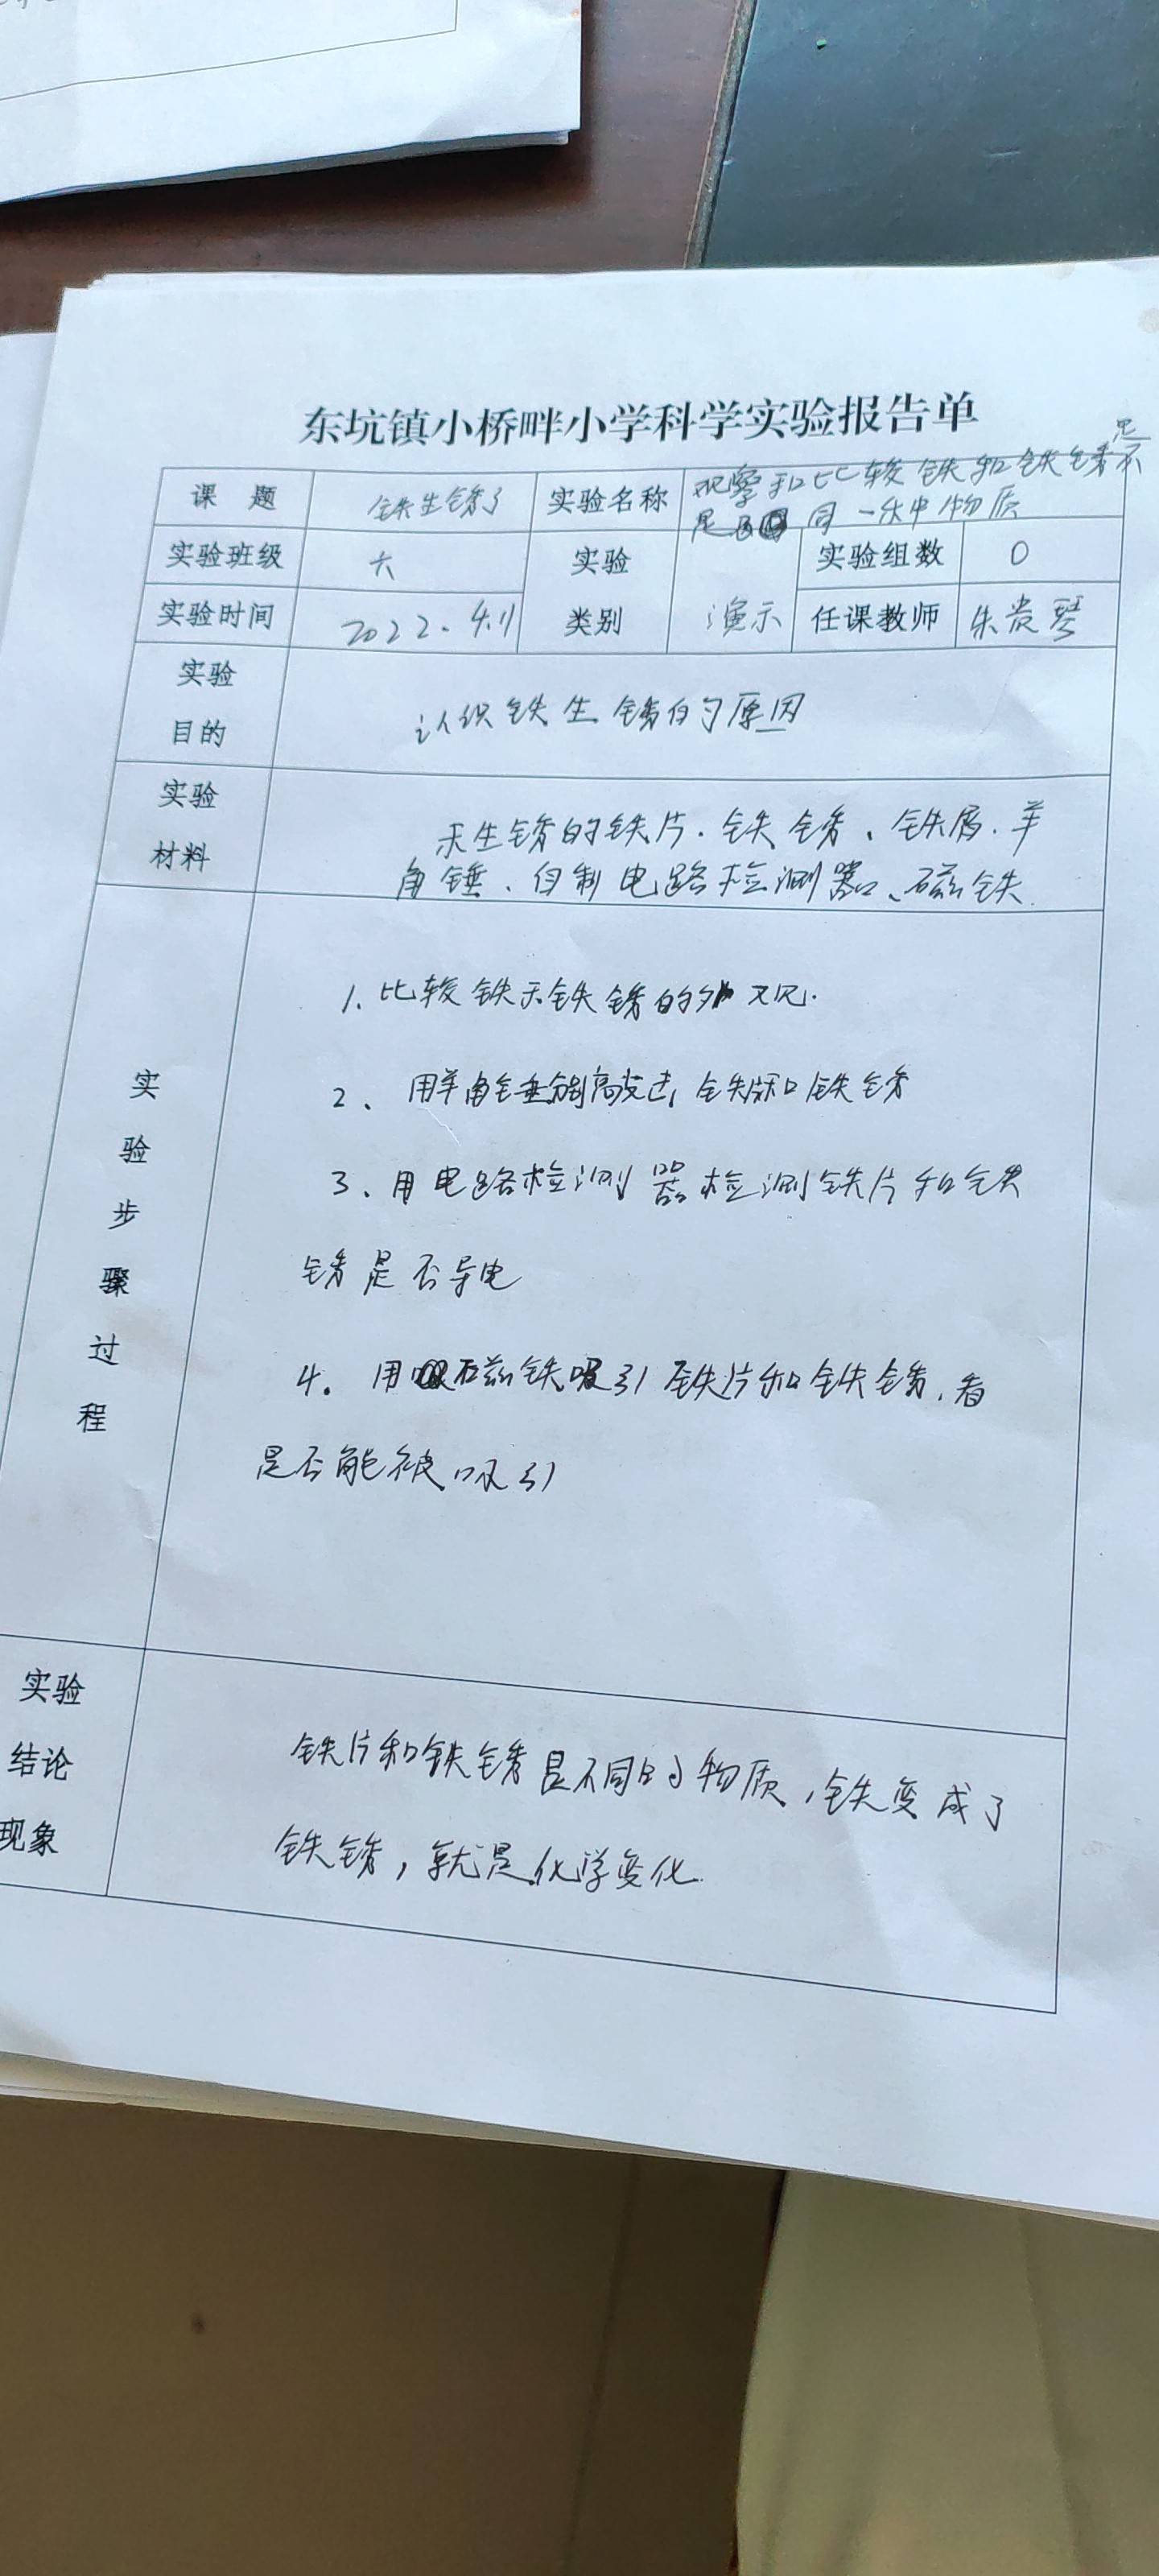 东坑镇小桥畔小学科学实验报告单
课 题 铁生锈了 实验名称 观察和比较铁和铁锈是不
是 同一种物质
实验班级 六 实验 类别 演示 实验组数 0
实验时间 2022.4.11 任课教师 朱 琴
实验
目的
认识铁生锈的原因
实验
材料
未生锈的铁片、铁锈、铁屑、羊
角锤、自制电路检测器、磁铁
实验步骤过程
1. 比较铁 铁锈的外观.
2、用羊角锤 铁片和铁锈
3、用电路检测器检测铁片和铁
锈是否导电
4. 用磁铁吸引铁片和铁锈,看
是否能被吸引
实验
结论
现象
铁片和铁锈是不同的物质,铁变成了
铁锈,就是化学变化.